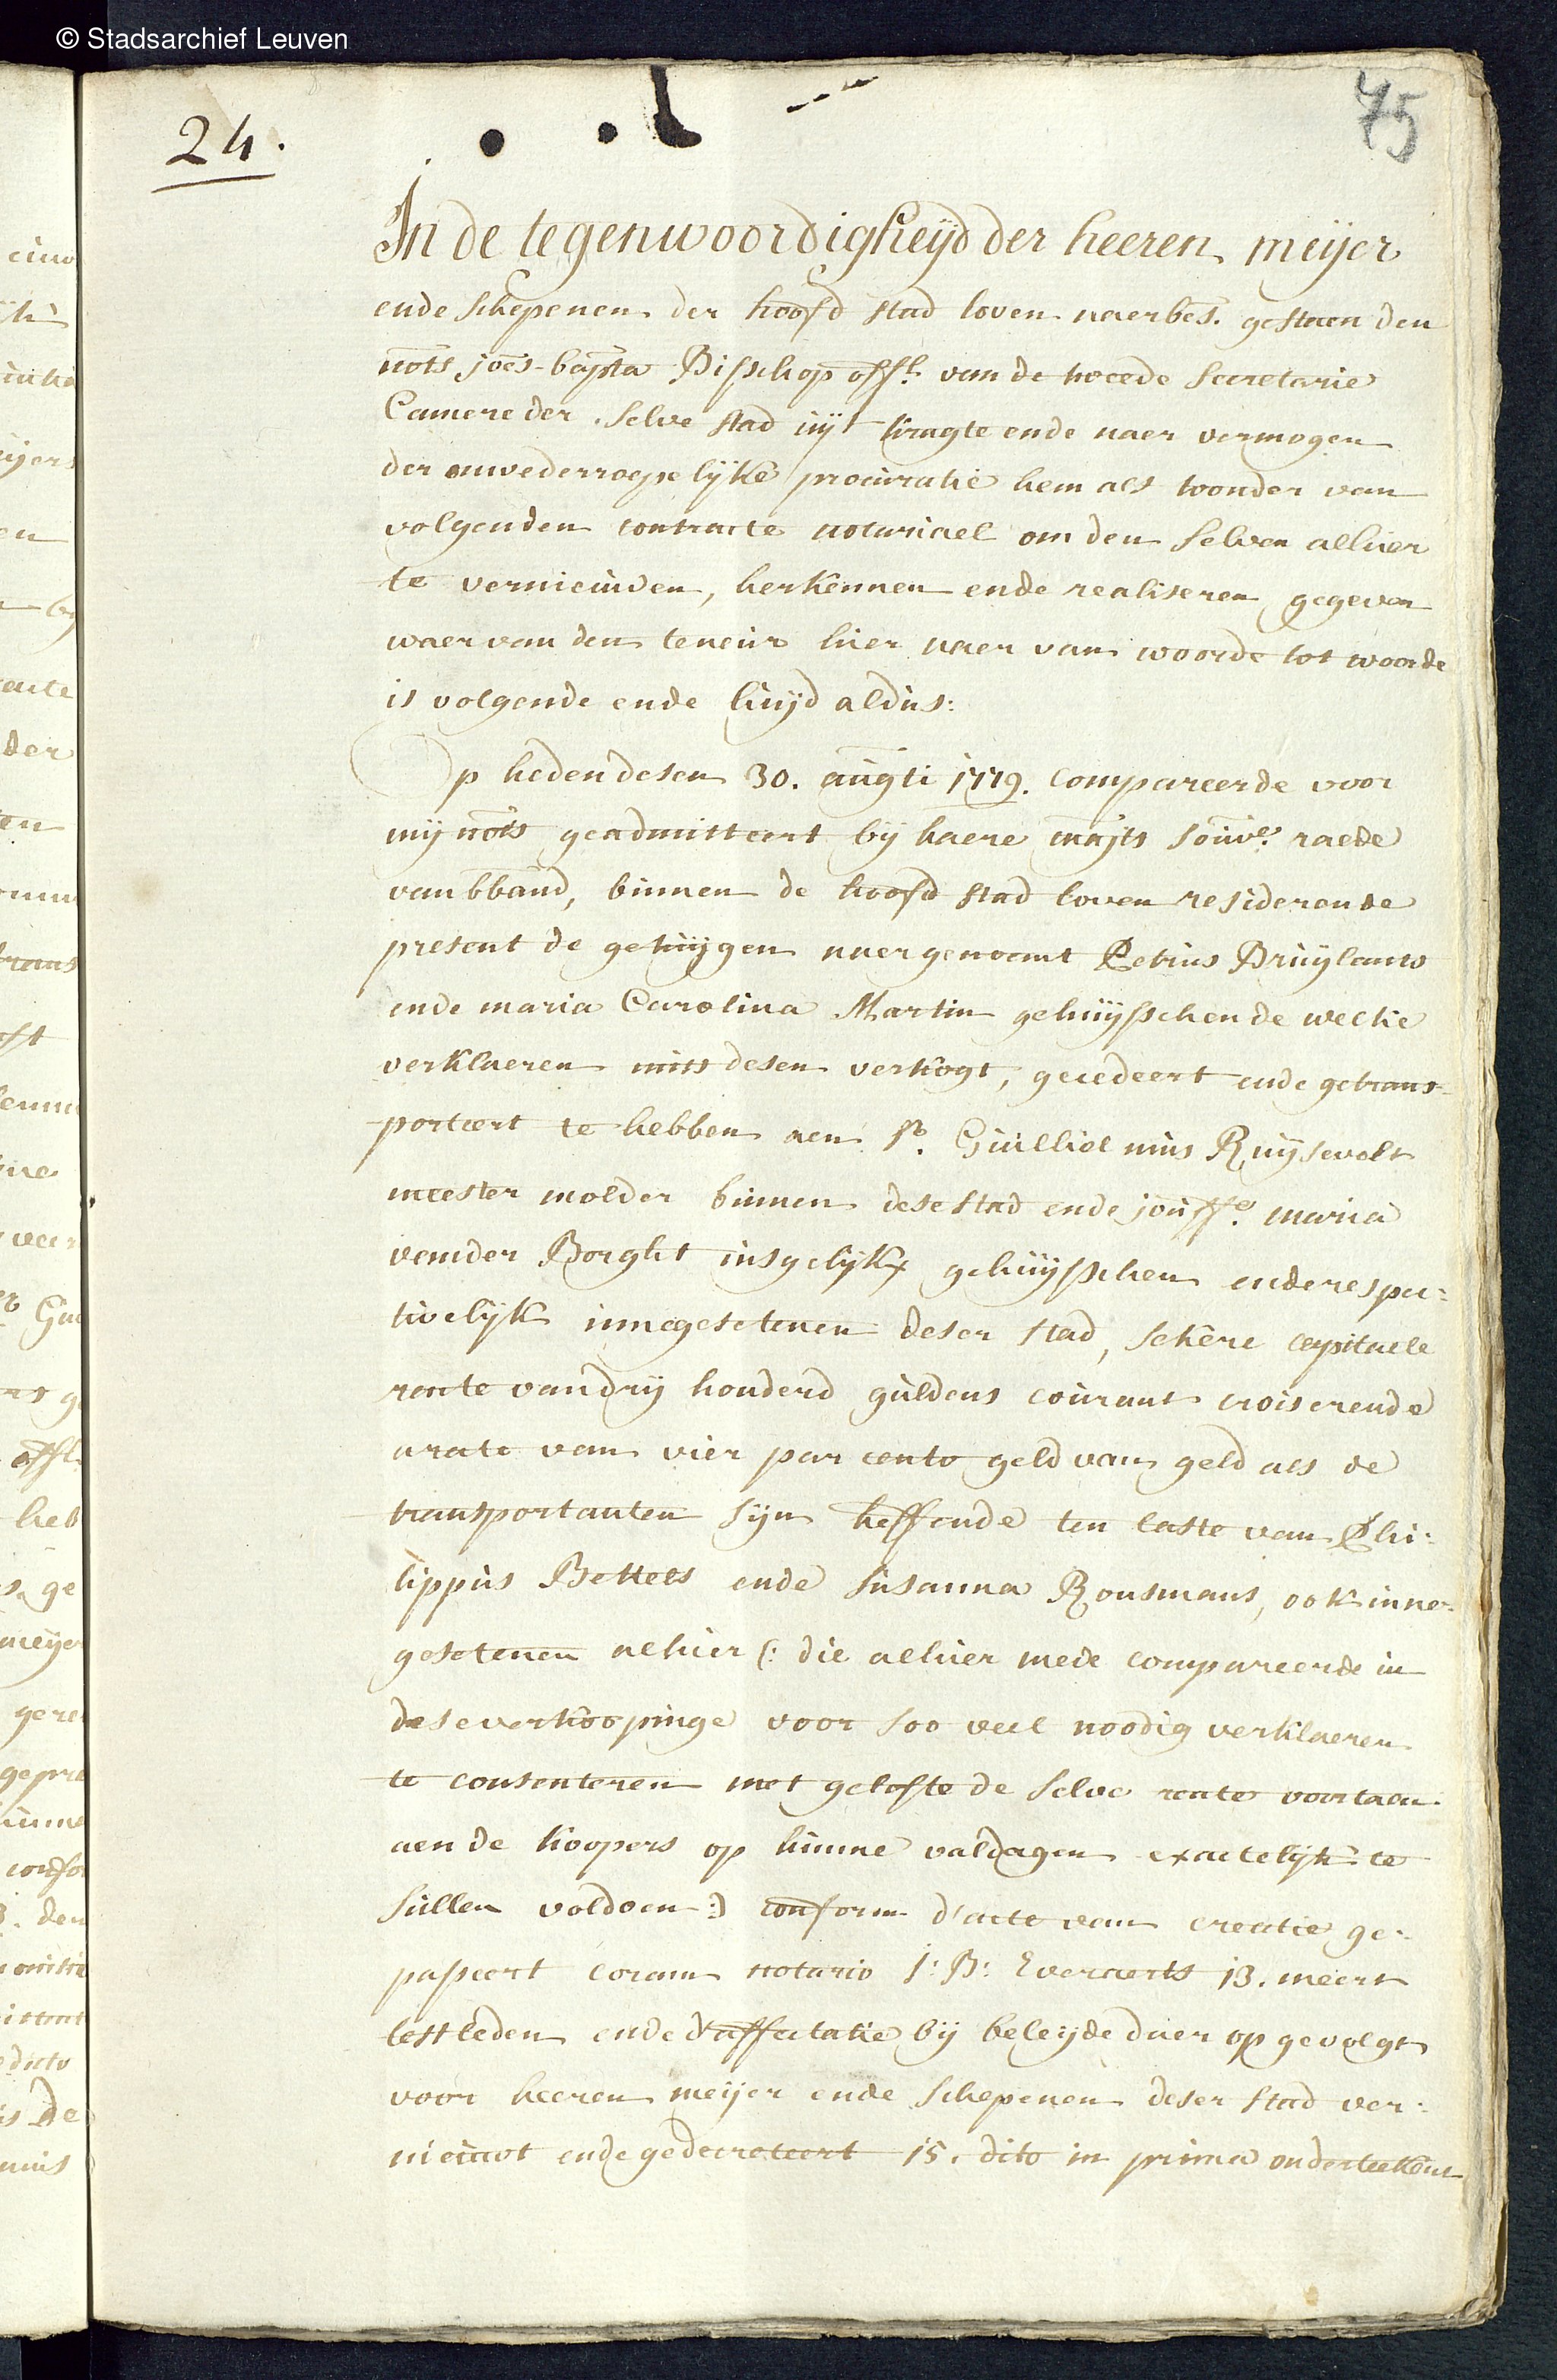 © Stadsarchief Leuven
75
24.
In de tegenwoordigheijd der heeren meijer
ende schepenen der hoofd stad loven naerbes. gestaen den
nots joês-bapta Bisschop offl. van de tweede secretarie
Camere der selve stad uijt kragte ende naer vermogen
der onwederroepelijke procuratie hem als toonder van
volgenden contracte notariael om den selven alhier
te vernieuwen, herkennen ende realiseren gegeven
waer van den teneur hier naer van woorde tot woorde
is volgende ende luijd aldus:
Op heden desen 30. augti 1779. compareerde voor
mij nots geadmitteert bij haere majts souvs. raede
van bband, binnen de hoofd stad loven residerende
present de getuijgen naergenoemt Petrus Bruijlants
ende maria Carolina Martin gehuijsschen de welcke
verklaeren mits desen verkogt, gecedeert ende getrans-
porteert te hebben aen sr. Guilliel mus Ruijsevelt
meester molder binnen dese stad ende jouffe. maria
vander Borght insgelijkx gehuijsschen ende respec-
tivelijk innegesetenen deser stad, sekere capitaele
rente van drij honderd guldens courant croiserende
a rate van vier par cento geld van geld als de
transportanten sijn heffende ten laste van Phi-
lippus Bettets ende susanna Rousmans, ook inne-
gesetenen alhier (: die alhier mede compareerde in
dese verkoopinge voor soo veel noodig verklaeren
te consenteren met gelofte de selve rente voortaen
aen de koopers op hunne valdagen exactelijk te
sullen voldoen :) conform d'acte van creatie ge-
passeert coram notario J: B: Everaerts 13. meert
lestleden ende d'affectatie bij beleijde daer op gevolgt
voor heeren meijer ende schepenen deser stad ver-
nieuwt ende gedecreteert 15. dito in prima onderteekent